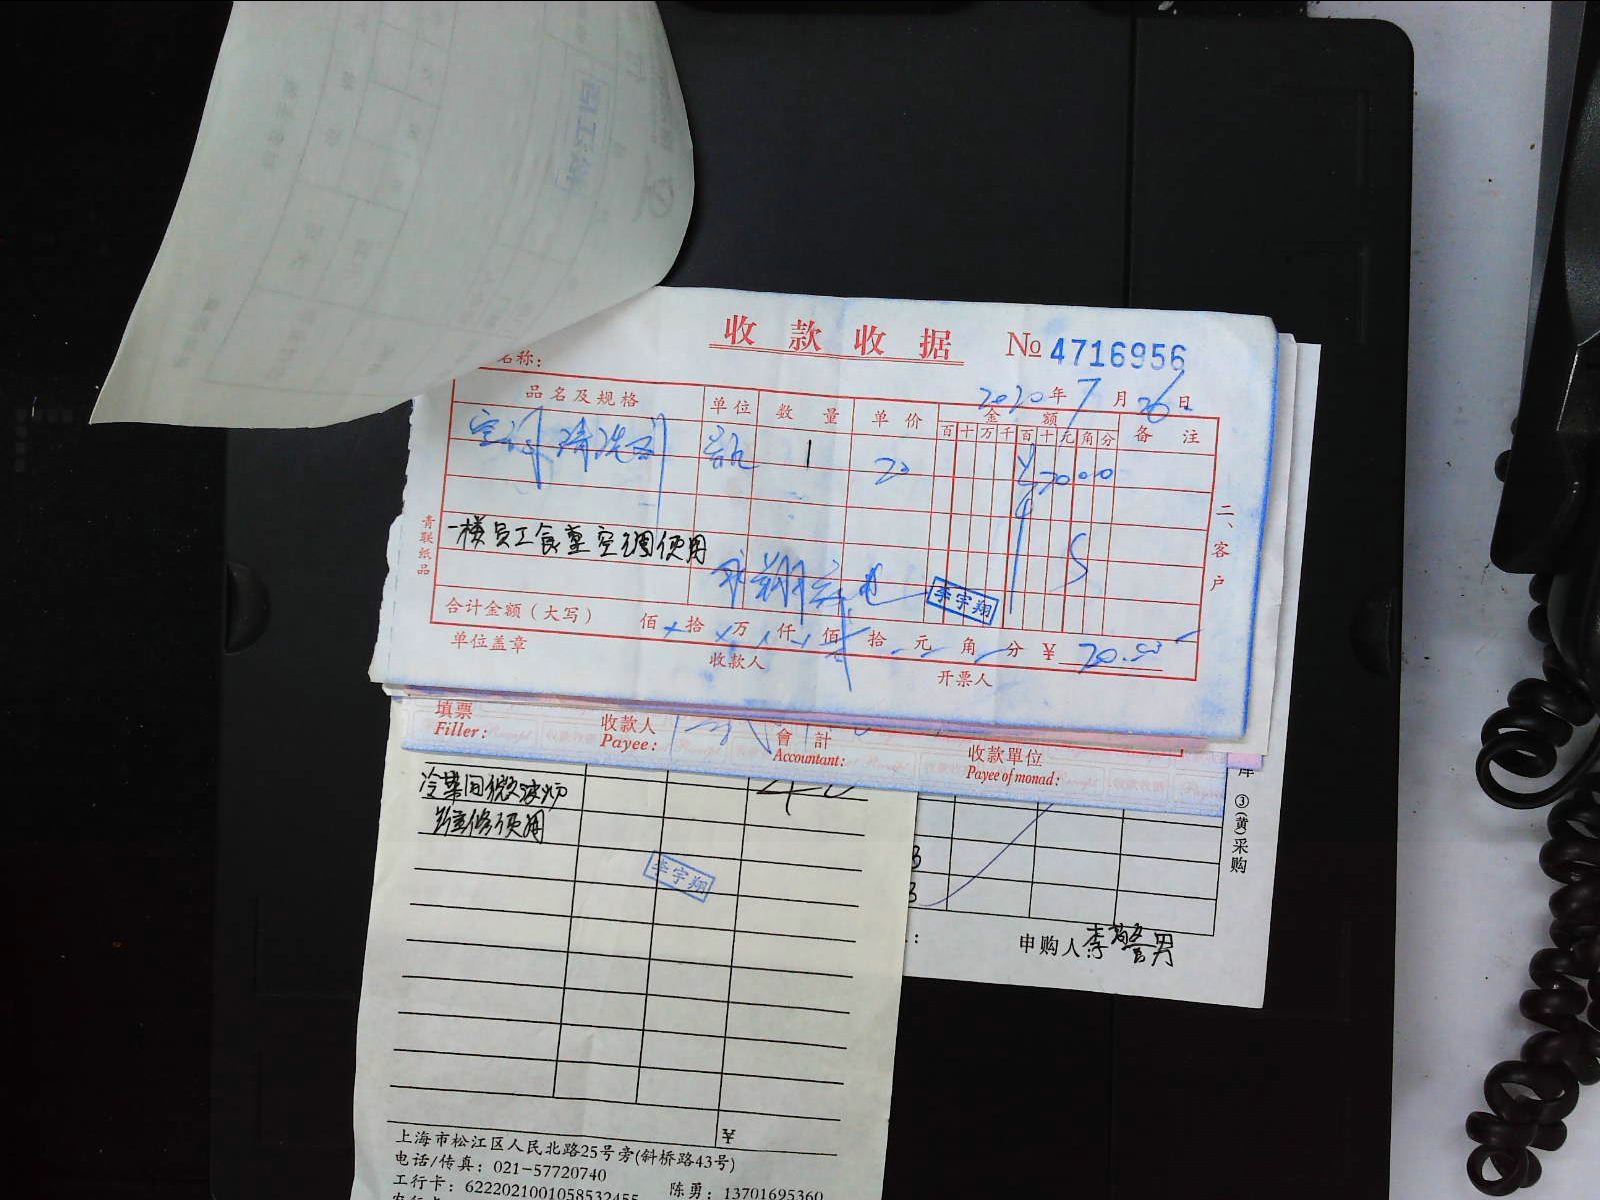 收款收据 № 4716956
名称：
2020年7月26日
品名及规格 单位 数量 单价 金额 备注
百十万千百十元角分
空调清洗剂 瓶 1 20 ¥2000
一楼员工食堂空调使用
李宇翔
合计金额（大写） 佰 拾 万 仟 佰 拾 元 角 分 ¥ 20.00
单位盖章 收款人 开票人
青联纸品
二、客户
填票 收款人 會計 收款單位
Filler: Payee: Accountant: Payee of monad:
冷菜间微波炉
维修使用
李宇翔
③(黄)采购
申购人 李警男
¥
上海市松江区人民北路25号旁(斜桥路43号)
电话/传真：021-57720740
工行卡：6222021001058532455 陈勇：13701695360